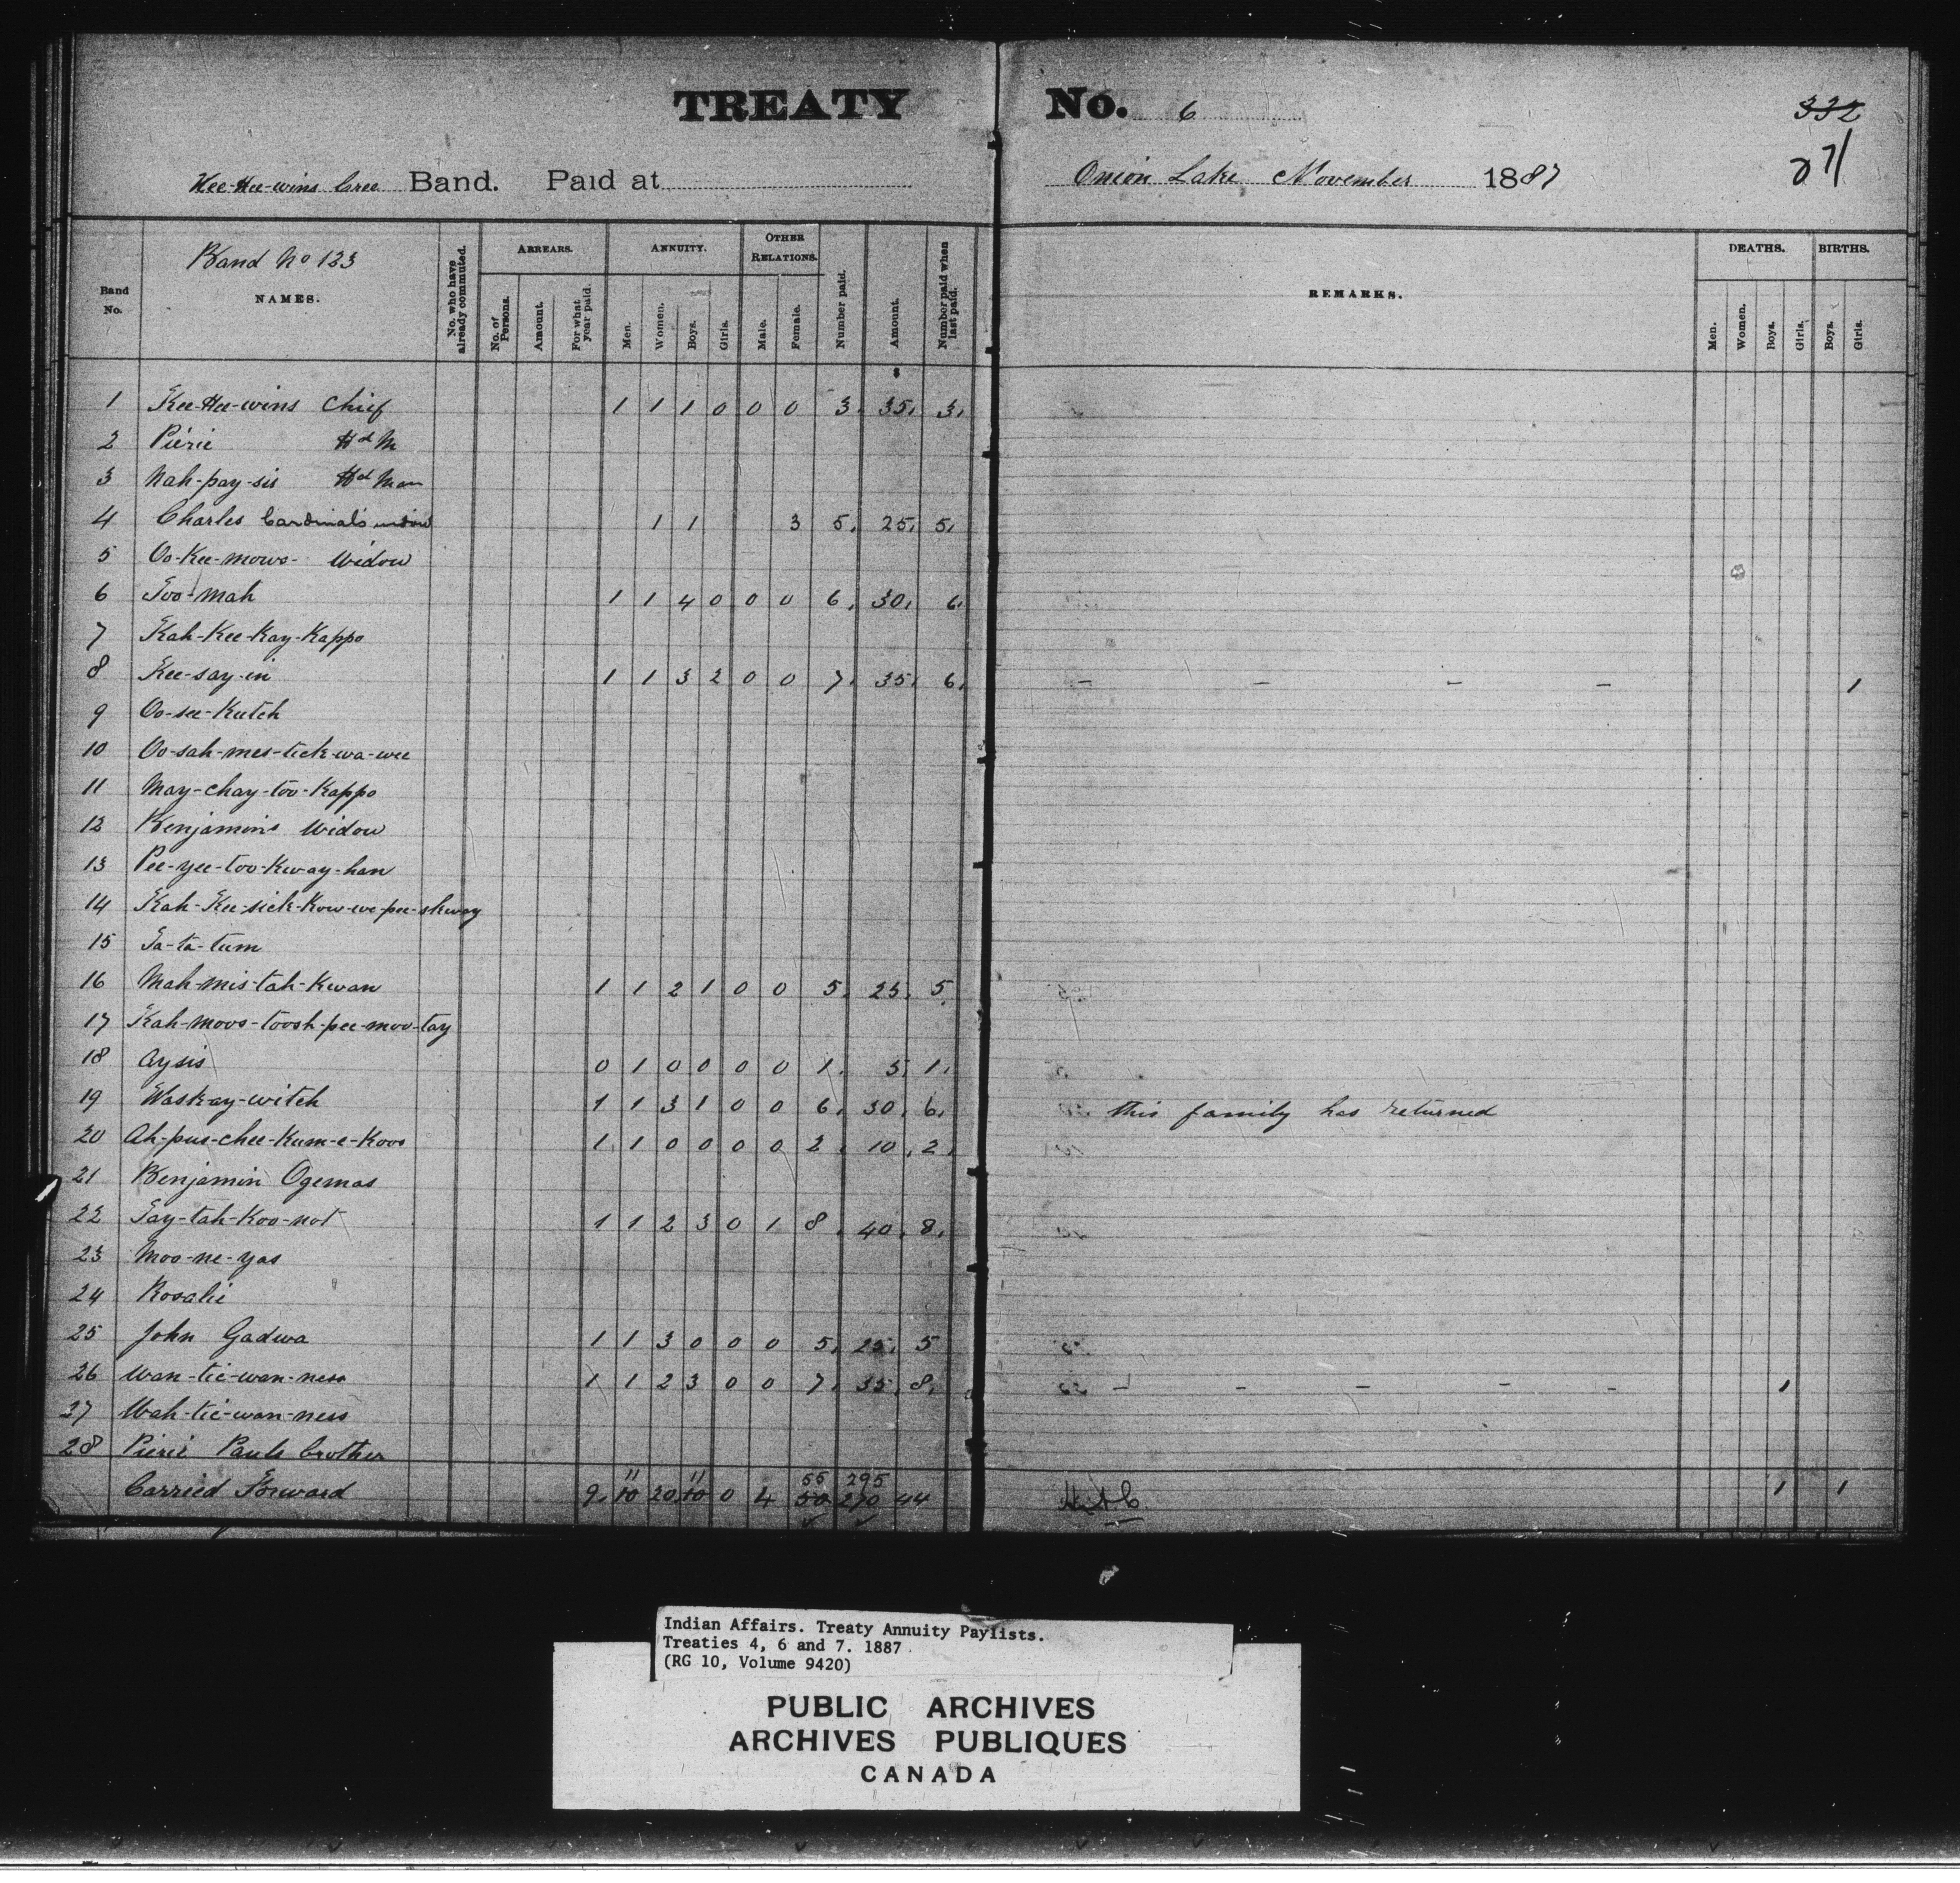 TREATY No. 6
332
271
Kee-Hee-wins Cree Band. Paid at Onion Lake November 1887
Band No 123
Band No. NAMES. No. who have already commuted. ARREARS. No. of Persons. Amount. For what year paid. ANNUITY. Men. Women. Boys. Girls. OTHER RELATIONS. Male. Female. Number paid. Amount. Number paid when last paid. REMARKS. DEATHS. Men. Women. Boys. Girls. BIRTHS. Boys. Girls.
1 Kee-Hee-wins Chief 1 1 1 0 0 0 3. 35. 3.
2 Piérie Hd M
3 Nah-pay-sis Hd Man
4 Charles Cardinal's widow 1 1 3 5. 25. 5.
5 Oo-Kee-mows- Widow
6 Soo-mah 1 1 4 0 0 0 6. 30. 6.
7 Kah-Kee-Kay-Kappo
8 Kee-say-in 1 1 3 2 0 0 7. 35. 6. - - - - 1
9 Oo-see-Kutch
10 Oo-sah-mes-tick-wa-wee
11 May-chay-too-Kappo
12 Benjamin's Widow
13 Pee-yee-too-Kway-han
14 Kah-Kee-sick-Kow-we-pee-skway
15 Ta-ta-tum
16 Mah-mis-tah-Kwan 1 1 2 1 0 0 5. 25. 5
17 Kah-moos-toosh-pee-moo-tay
18 Aysis 0 1 0 0 0 0 1. 5. 1.
19 Waskay-witch 1 1 3 1 0 0 6. 30. 6. this family has returned
20 Ah-pus-chee-Kum-e-Koos 1 1 0 0 0 0 2. 10. 2.
21 Benjamin Ogemas
22 Tay-tah-Koo-not 1 1 2 3 0 1 8. 40. 8.
23 Moo-ne-yas
24 Rosalie
25 John Gadwa 1 1 3 0 0 0 5. 25. 5
26 Wan-tie-wan-ness 1 1 2 3 0 0 7. 35. 8. - - - - - 1
27 Wah-tie-wan-ness
28 Pierie Pauls brother
11 11 55 295
Carried Forward 9. 10 20 10 0 4 50 270 44 1 1
Indian Affairs. Treaty Annuity Paylists.
Treaties 4, 6 and 7. 1887
(RG 10, Volume 9420)
PUBLIC ARCHIVES
ARCHIVES PUBLIQUES
CANADA